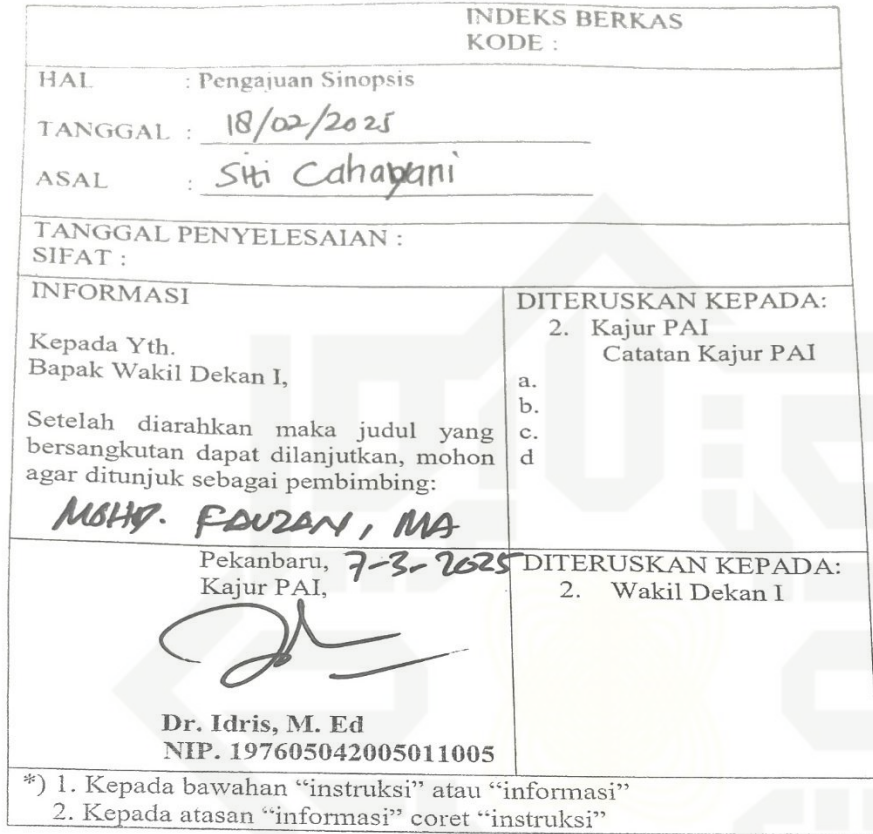 INDEKS BERKAS
KODE :
HAL : Pengajuan Sinopsis
TANGGAL : 18/02/2025
ASAL : Siti Cahayani
TANGGAL PENYELESAIAN :
SIFAT :
INFORMASI
Kepada Yth.
Bapak Wakil Dekan I,
Setelah diarahkan maka judul yang
bersangkutan dapat dilanjutkan, mohon
agar ditunjuk sebagai pembimbing:
MOHD. FAUZAN, MA
DITERUSKAN KEPADA:
2. Kajur PAI
Catatan Kajur PAI
a.
b.
c.
d
Pekanbaru, 7-3-2025
Kajur PAI,
Dr. Idris, M. Ed
NIP. 197605042005011005
DITERUSKAN KEPADA:
2. Wakil Dekan I
*) 1. Kepada bawahan “instruksi” atau “informasi”
2. Kepada atasan “informasi” coret “instruksi”